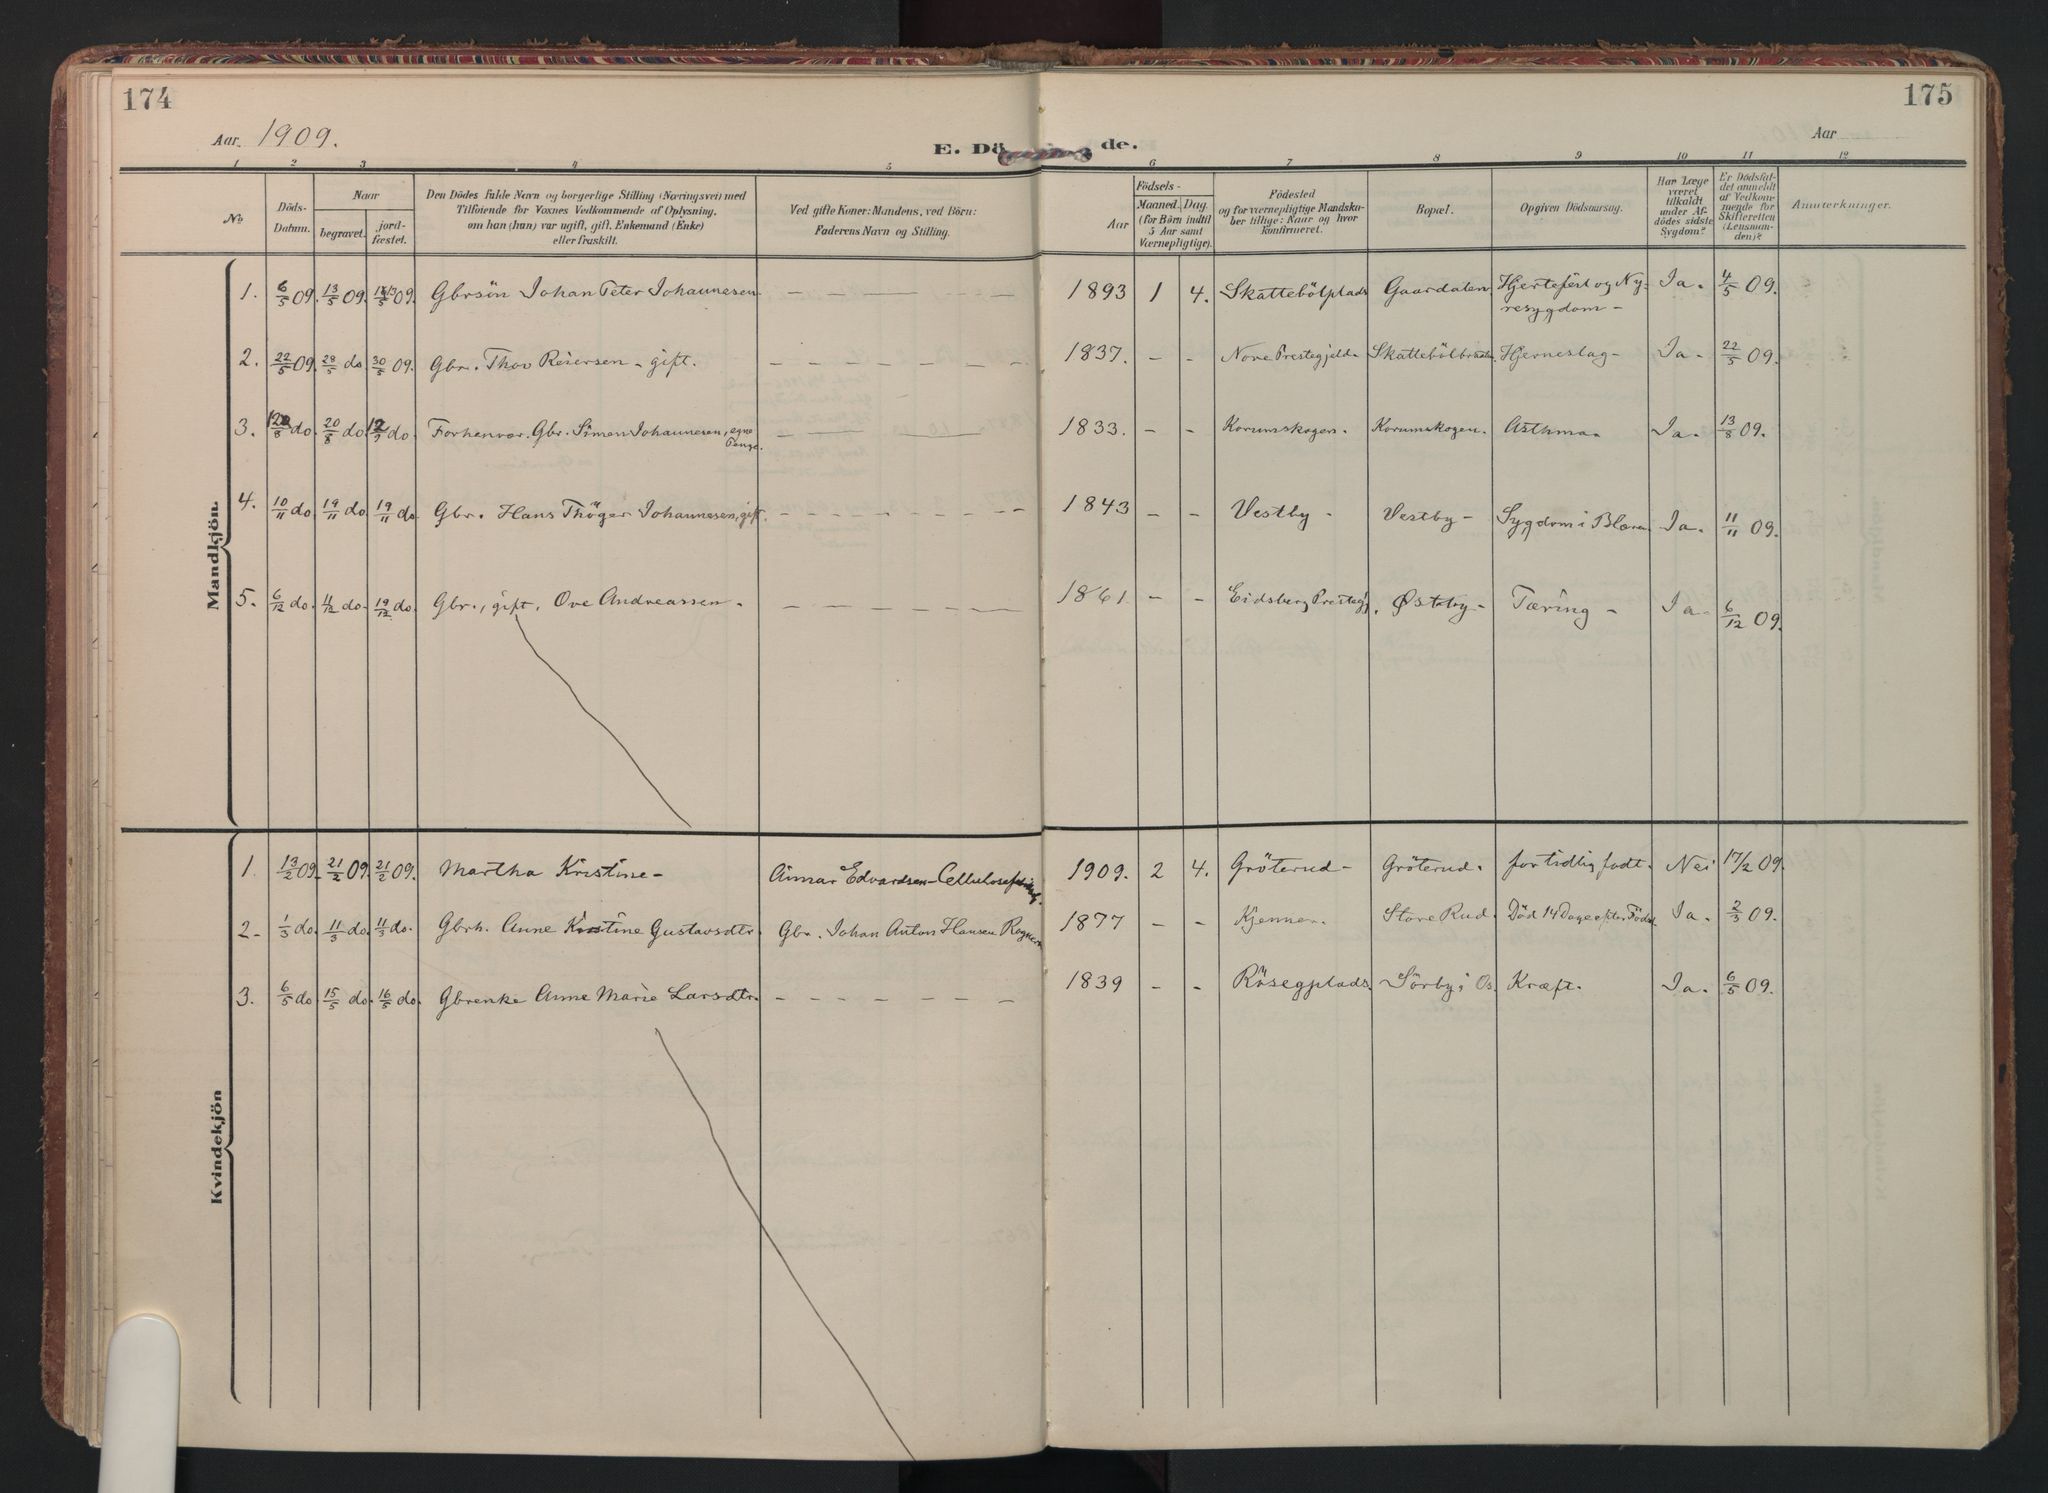 174
175
Aar. 1909.
E. Dö de.
Aar
1 2 3 4 5 6 7 8 9 10 11 12
No
Döds-Datum.
Naar
begravet.
jord-fæstet.
Den Dödes fulde Navn og borgerlige Stilling (Næringsvei) med
Tilföiende for Voxnes Vedkommende af Oplysning,
om han (hun) var ugift, gift, Enkemand (Enke)
eller fraskilt.
Ved gifte Koner: Mandens, ved Börn:
Faderens Navn og Stilling.
Födsels-
Aar
Maaned. Dag.
(for Börn indtil
5 Aar samt
Værnepligtige).
Födested
og for værnepligtige Mandska-
ber tillige: Naar og hvor
konfirmeret.
Bopæl.
Opgiven Dödsaarsag.
Har Læge
været
tilkaldt
under Af-
dödes sidste
Sygdom?
Er Dödsfal-
det anmeldt
af Vedkom-
mende for
Skifteretten
(Lensman-
den)?
Anmerkninger.
Mandkjön.
1. 6/5 09. 13/5 09. 13/5 09. Gbrsön Johan Peter Johannesen. – – – – – 1893 1 4. Skattebölplads Gaardalen. Hjertefeil og Ny-
resygdom – Ja. 4/5 09.
2. 22/5 09. 28/5 do. 30/5 09. Gbr. Thov Reiersen – gift. – – – – – 1837. – – Nore Prestegjeld. Hjerneslag – Ja – 22/5 09.
3. do. 20/8 do. do. Forhenvær. Gbr. Simen Johannesen, egne
Penge. – – – – – 1833. – – Korumskogen. Korumskogen. Asthma. Ja. 13/8 09.
4. 10/11 do. 19/11 do. 19/11 do. Gbr. Hans Thöger Johannesen, gift. – – – – – 1843 – – Vestby – Vestby – Sygdom i Blæren Ja. 11/11 09.
5. 6/12 do. 11/12 do. 19/12 do. Gbr., gift. Ove Andreassen. – – – – – 1861 – – Eidsberg Prestegj. Østby – Tæring – Ja – 6/12 09.
Kvindekjön
1. 13/2 09. 21/2 09. 21/2 09. Martha Kristine – Einar Edvardsen – 1909. 2 4. Gröterud – Gröterud. for tidlig födt. Nei 17/2 09.
2 – 1/3 do. 11/3 do. 11/3 do. Gbrh. Anne Kristine Gustavsdtr. Gbr. Johan Anton Hansen 1877 – – Kjenner. Store Rud. Död 14 Dage efter Födsel Ja. 2/3 09.
3. 6/5 do. 15/5 do. 16/5 do. Gbrenke Anne Marie Larsdtr. – – – – – 1839 – – Rösegplads. Sörby i Os. Kræft. Ja. 6/5 09.